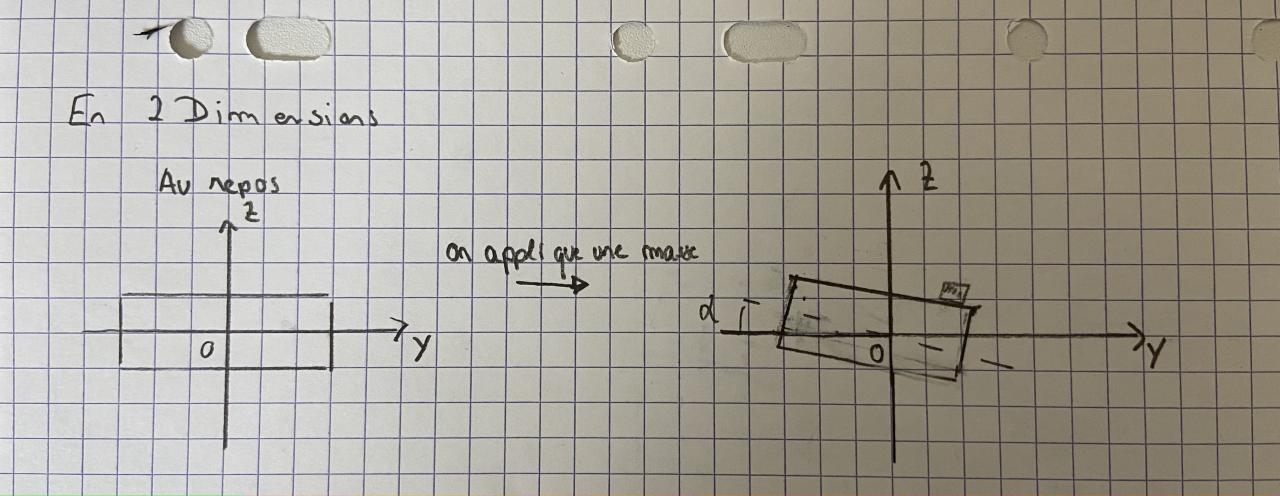 En 2 Dimensions
Au repos
z
O
y
on applique une masse
z
m
d
O
y